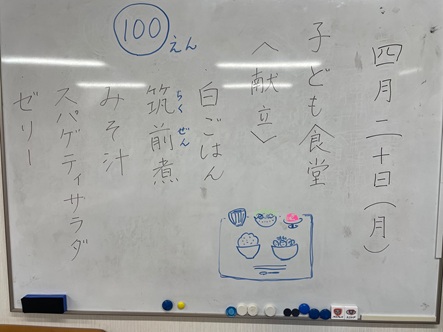 四月二十日(月)
子ども食堂
〈献立〉
白ごはん
筑前煮
ちくぜん
みそ汁
スパゲティサラダ
ゼリー
100えん